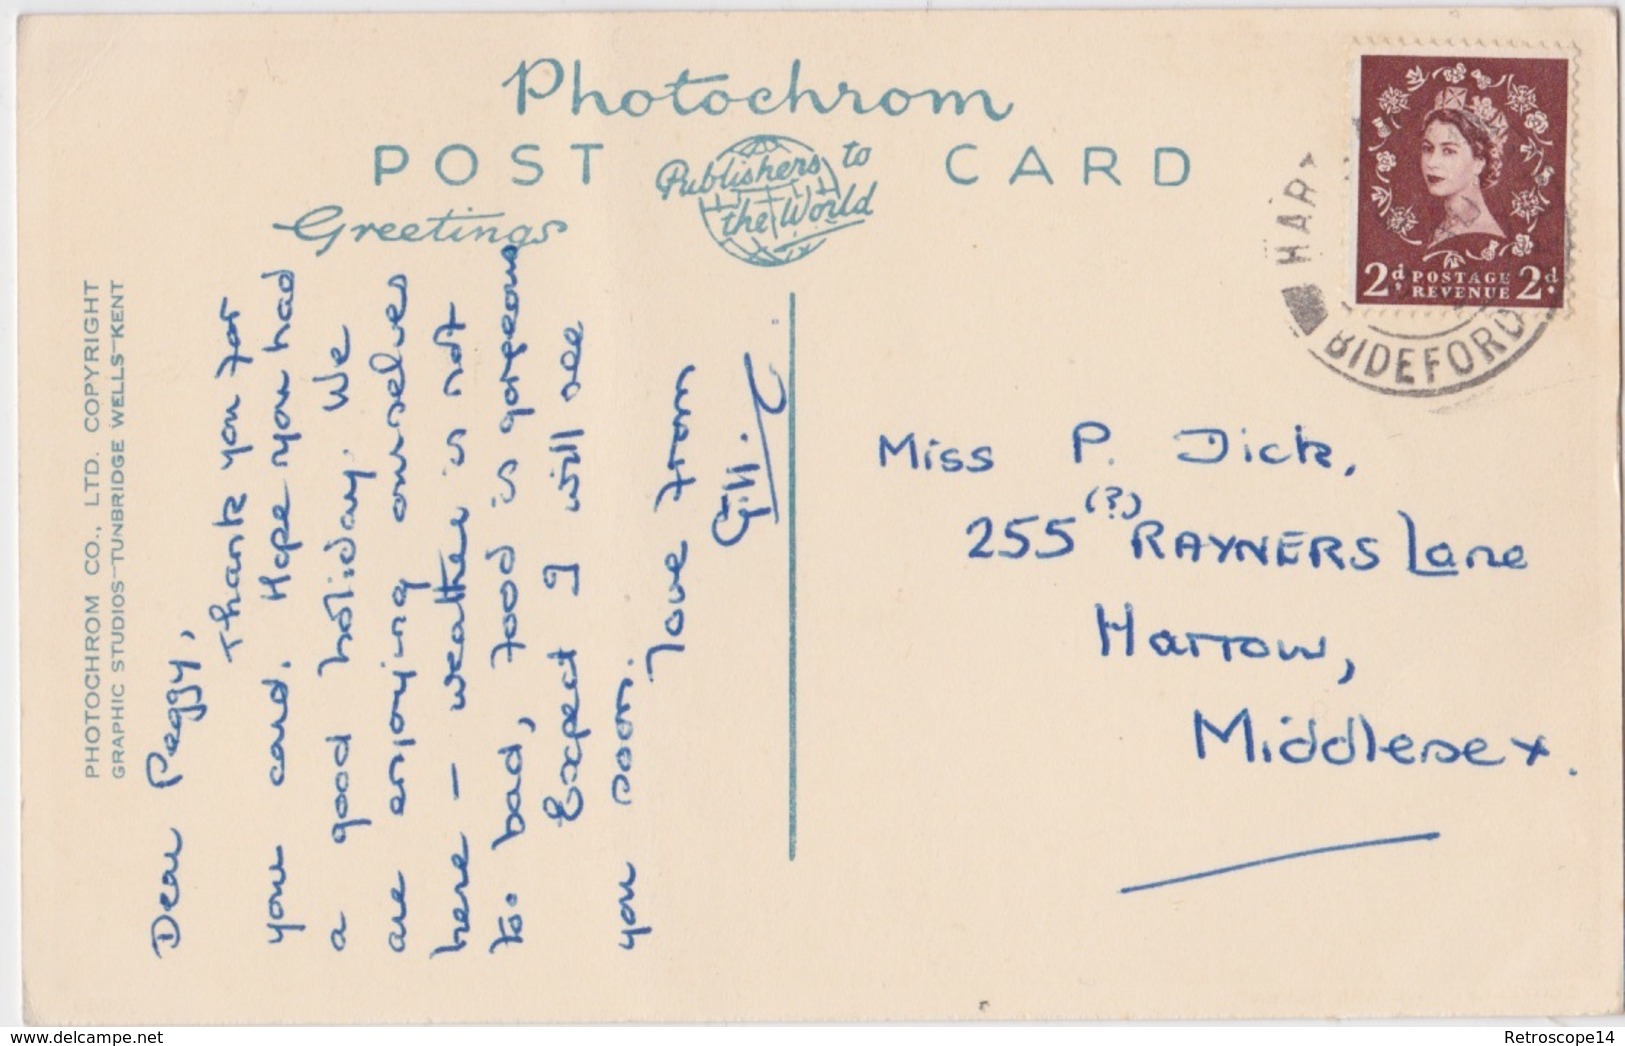 Photochrom
POST CARD
Publishers to
the World
Greetings
PHOTOCHROM CO., LTD. COPYRIGHT
GRAPHIC STUDIOS-TUNBRIDGE WELLS-KENT
Dear Peggy,
Thank you for
your card. Hope you had
a good holiday. We
are enjoying ourselves
here - weather is not
to. bad, food is gorgeous
Expect I will see
you soon.
love from
Gill.
2d. POSTAGE 2d.
REVENUE
HAR
BIDEFORD
Miss P. Dick,
255 (?) RAYNERS Lane
Harrow,
Middlesex.
delcampe.net
Retroscope14